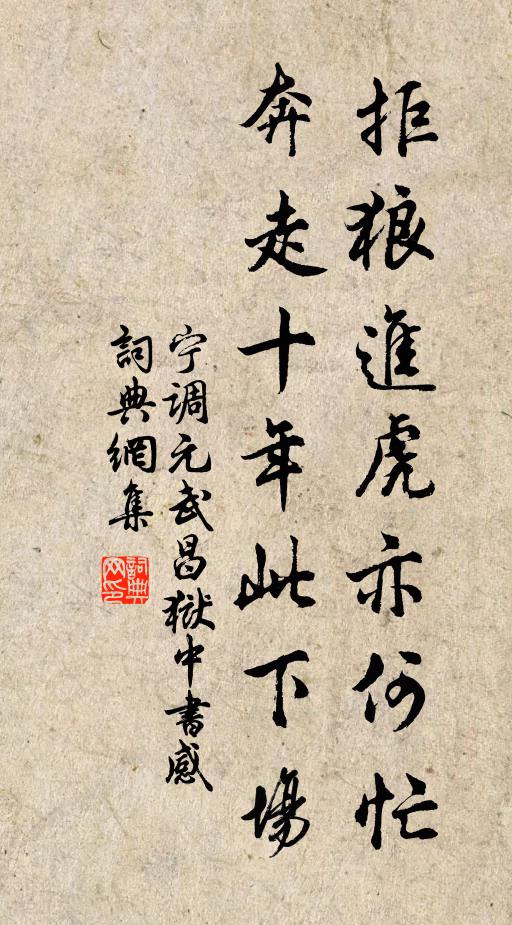 拒狼進虎亦何忙
奔走十年此下場
宁调元武昌獄中書感
詞典網集
詞典网印